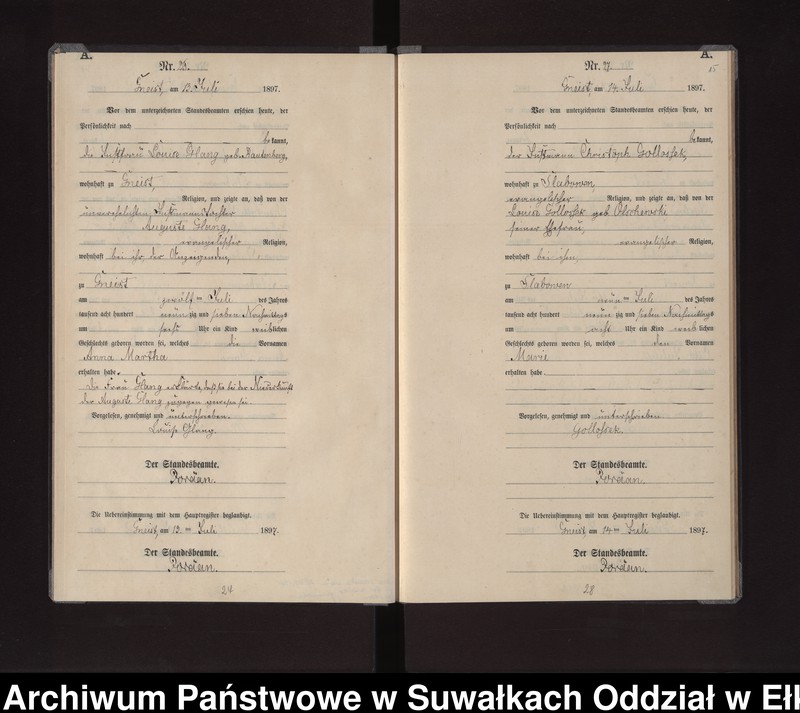 A.
Nr. 26.
Gneist, am 13. Juli 1897.
Vor dem unterzeichneten Standesbeamten erschien heute, der
Persönlichkeit nach
be kannt,
die Instfrau Louise Glang geb. Kautenberg,
wohnhaft zu Gneist,
Religion, und zeigte an, daß von der
unverehelichten Instmannstochter
Auguste Glang,
evangelischer Religion,
wohnhaft bei ihr, der Anzeigenden,
zu Gneist
am zwölf ten Juli des Jahres
tausend acht hundert neun zig und sieben Nachmittags
um sechs Uhr ein Kind weib lichen
Geschlechts geboren worden sei, welches die Vornamen
Anna Martha
erhalten habe.
Die Frau Glang erklärte, daß sie bei der Niederkunft
der Auguste Glang zugegen gewesen sei
Vorgelesen, genehmigt und unterschrieben.
Louise Glang.
Der Standesbeamte.
Die Uebereinstimmung mit dem Hauptregister beglaubigt.
Gneist, am 13 ten Juli 1897.
Der Standesbeamte.
27
A.
15
Nr. 27.
Gneist, am 14. Juli 1897.
Vor dem unterzeichneten Standesbeamten erschien heute, der
Persönlichkeit nach
be kannt,
der Instmann Christoph Gollossek,
wohnhaft zu Slabowen,
evangelischer Religion, und zeigte an, daß von der
Louise Gollossek geb. Olschewski
seiner Ehefrau,
evangelischer Religion,
wohnhaft bei ihm,
zu Slabowen
am neun ten Juli des Jahres
tausend acht hundert neun zig und sieben Nachmittags
um acht Uhr ein Kind weib lichen
Geschlechts geboren worden sei, welches den Vornamen
Marie
erhalten habe.
Vorgelesen, genehmigt und unterschrieben
Gollossek.
Der Standesbeamte.
Die Uebereinstimmung mit dem Hauptregister beglaubigt.
Gneist, am 14 ten Juli 1897.
Der Standesbeamte.
28
Archiwum Państwowe w Suwałkach Oddział w Ełk